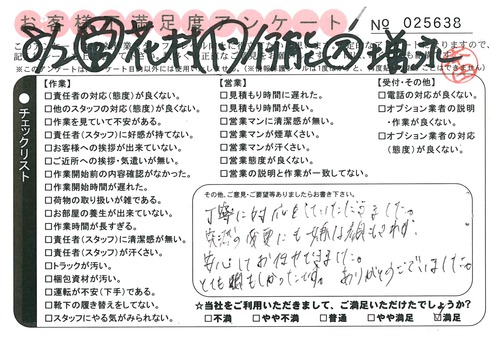 お客様満足度アンケート
No 025638
チェックリスト
【作業】
□責任者の対応(態度)が良くない。
□他のスタッフの対応(態度)が良くない。
□作業を見ていて不安がある。
□責任者(スタッフ)に好感が持てない。
□お客様への挨拶が出来ていない。
□ご近所への挨拶・気遣いが無い。
□作業開始前の内容確認がなかった。
□作業開始時間が遅れた。
□荷物の取り扱いが雑である。
□お部屋の養生が出来ていない。
□作業時間が長すぎる。
□責任者(スタッフ)に清潔感が無い。
□責任者(スタッフ)が汗くさい。
□トラックが汚い。
□梱包資材が汚い。
□運転が不安(下手)である。
□靴下の履き替えをしてない。
□スタッフにやる気がみられない。
【営業】
□見積もり時間に遅れた。
□見積もり時間が長い。
□営業マンに清潔感が無い。
□営業マンが煙草くさい。
□営業マンが汗くさい。
□営業態度が良くない。
□営業の説明と作業が一致してない。
【受付・その他】
□電話の対応が良くない。
□オプション業者の説明
・作業が良くない。
□オプション業者の対応
(態度)が良くない。
その他、ご意見・ご要望等ありましたらお書き下さい。
丁寧に対応をしていただきました。
突然の変更にも嫌な顔もされず、
安心してお任せできました。
とても暖もしかったです。ありがとうございました。
☆当社をご利用いただきまして、ご満足いただけたでしょうか?
□不満 □やや不満 □普通 □やや満足 ☑満足